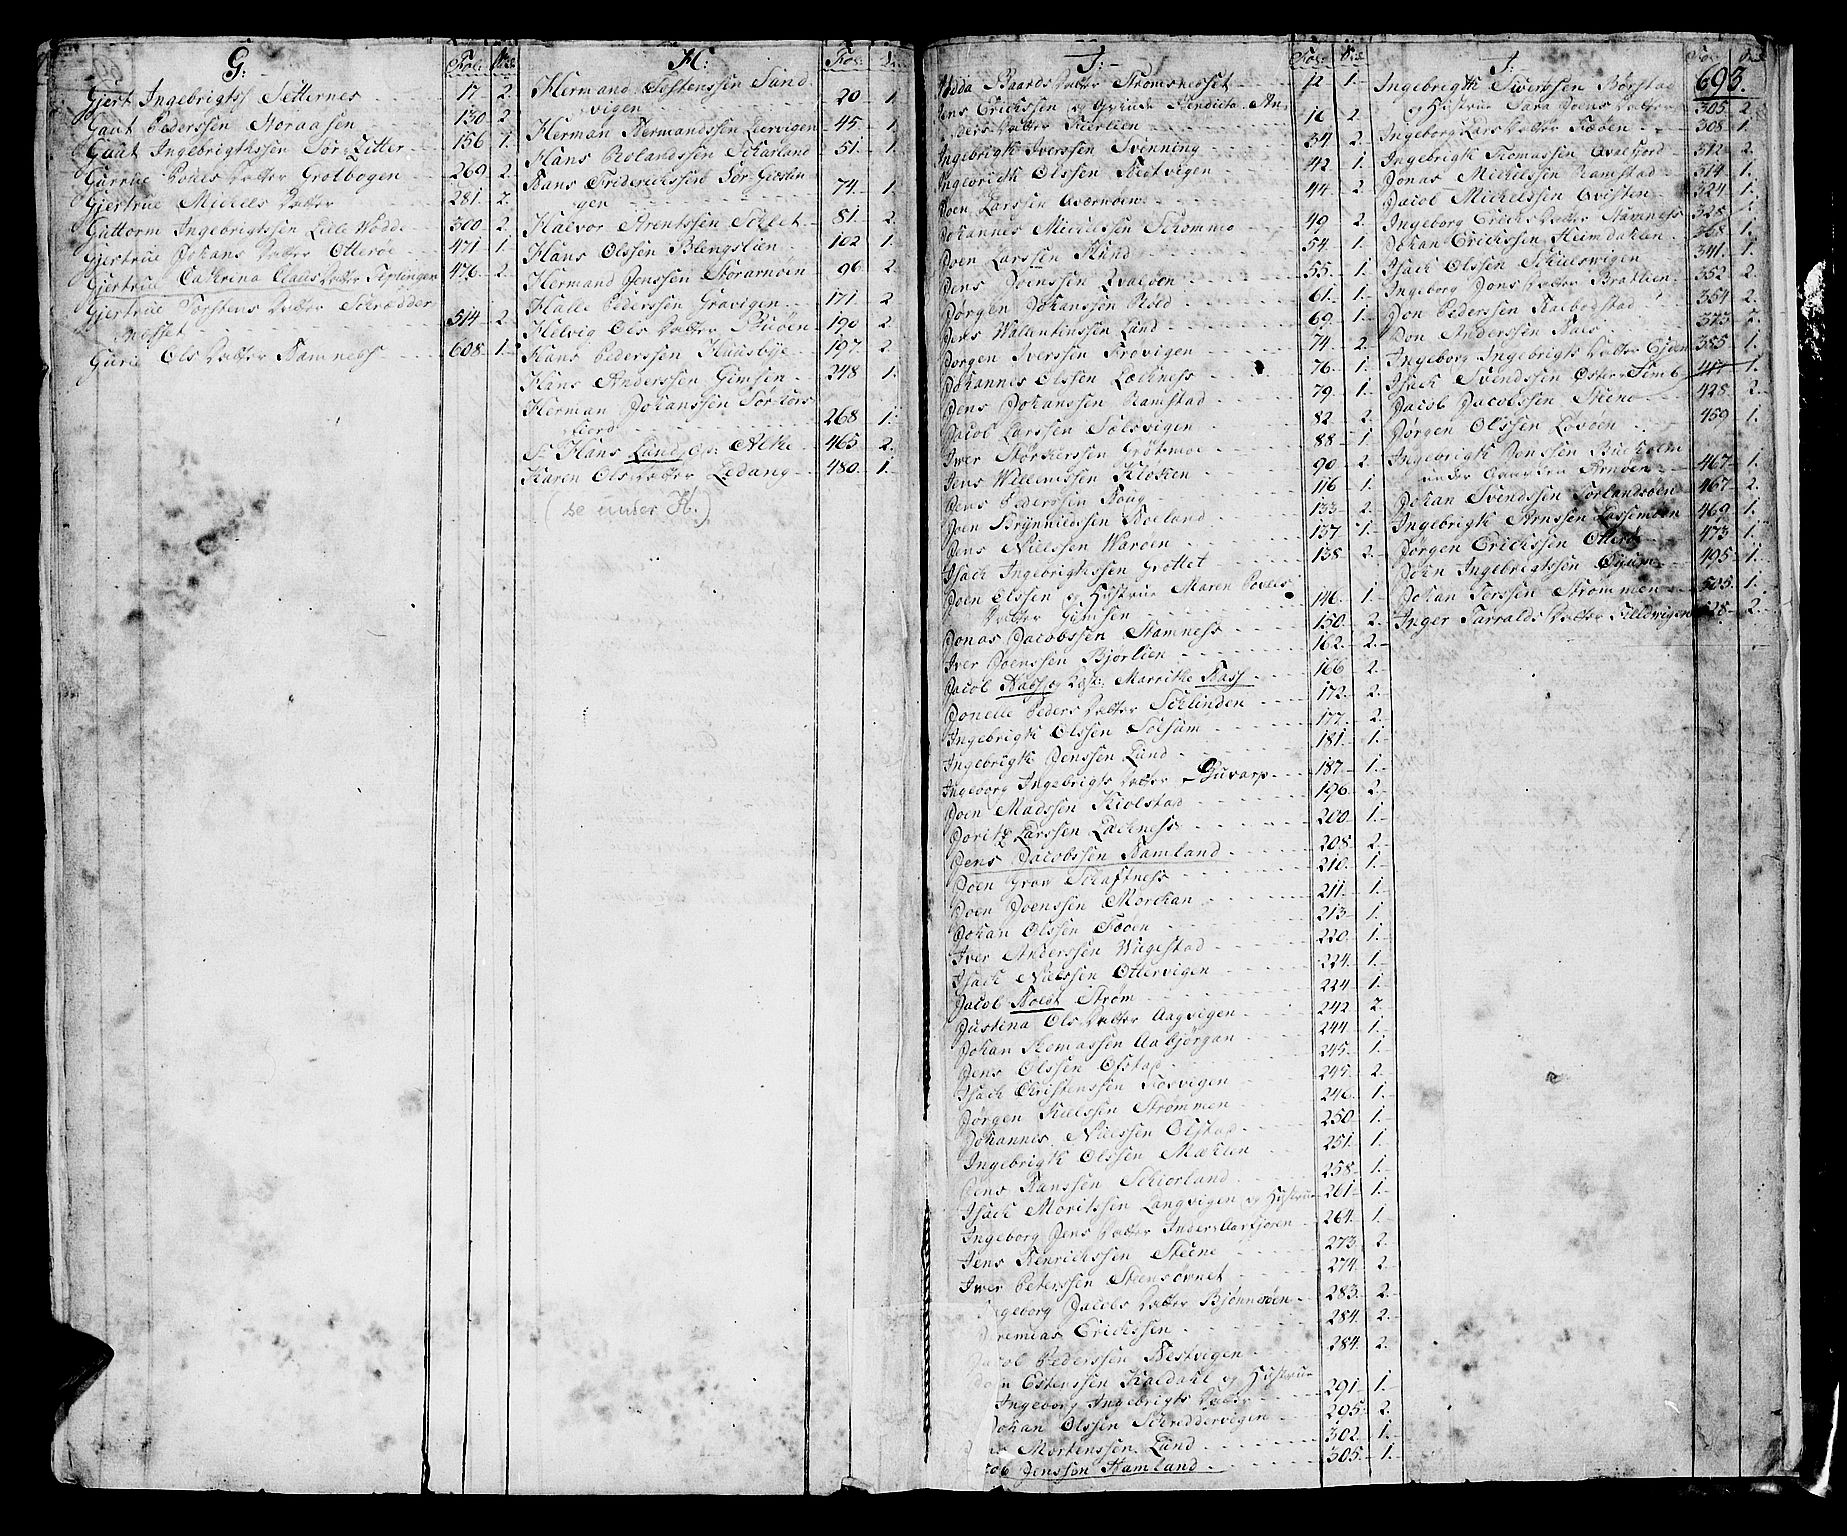 G: Fol: Sid:
Giert Ingebrigtss Setternes 17. 2.
Gaut Pederssen Horaasen 130 2.
Gaut Ingebrigthssen Sør Zitter 156 1.
Gurrue Dotter Grotbogen 269 2.
Gjertrue Michels Datter 281. 2.
Guttorm Ingebrigtssen Lille Wodde 300 2.
Gjertrue Johans Datter Otterøe 471 1.
Gjertrue Cathrina Claus Datter Teplingen 476 2.
Gjertrue Torstens Datter Schrædder
nesset 514 2.
Gurie Ols Datter Namness 608. 1.
H: Fol:
Hermand Sund
vigen 20 1.
Herman Hermandssen Leervigen 45 1.
Hans Rolandssen Scharland 51. 1.
Hans Friderickssen Sør Giesin
gen 74. 1.
Halvor Arentssen Schlet 81. 2.
Hans Olssen Blengslien 102 1.
Hermand Jenssen Storarnøen 96 2.
Halle Pederssen Gravigen 171. 2
Helvig Ols Datter Buøen 190 2.
Hans Pederssen Hausbye 197. 2.
Hans Anderssen Gimsen 248 1.
Herman Johanssen Sørhors
fierd 268 1.
Sr Hans Lund Op: Ache 465 2.
Karen Ols Datter Ledang 480. 1.
(se under K.)
I: Fol: Sid
Baards Datter Strømsnesset 12 1.
Jens Erickssen og Benidicta An
ders Datter Fierlien 16 2
Ingebrigth Iverssen Svinning 34 2.
Ingebrigth Olssen Rødvigen 42 1.
Joen Larssen Averøen 44 2.
Johannes Michelssen Schomme 49 2.
Joen Larssen Hund 54. 1.
Jens Joenssen Qvaløen 55. 1.
Jørgen Johanssen Rødd 61. 1.
Jens Wallentinssen Lund 69 1.
Jørgen Iverssen Frøvigen 74 2.
Johannis Olssen Lockness 76. 1.
Jens Johanssen Ramstad 79 1.
Jacob Larssen Solsvigen 82 2.
Iver Storkerssen Grøtmoe 88 1.
Jens Willemssen Klocken 90 2.
Jens Pederssen Houg 116 1.
Joen Brynnildssen Roeland 133 2.
Jens Nielssen Warøen 137 1.
Isach Ingebrigthssen Grottet 138 2.
Joen Olssen og Hustrue Maren Poules
Datter Gimsen 146 1.
Jonas Jacobssen Namness 150 2.
Iver Joenssen Bjørlien 162 2.
Jacob Hass og Marrithe Hass 166 2.
Jonelle Peders Datter Schlinden 172. 2.
Ingebrigth Olssen Solsum 177. 2.
Ingebrigth Jenssen Lund 181 1.
Ingeborg Ingebrigts Datter Buvarp 187 1.
Joen Madssen Kiolstad 196 2.
Joritz Larssen Lockness 200 1.
Jens Jacobssen Namland 208 2.
Joen Grav Schaftness 210 1.
Joen Joenssen Morchan 211 1.
Johan Olssen Faøen 213 1.
Iver Anderssen Wugestad 220 1.
Isach Nielssen Ottervigen 224 1.
Jacob Holst Strøm 224 1.
Justina Ols Datter Aagvigen 242 2
Johan Thomassen Aabjørgan 244 1.
Jens Olssen Ofstad 245 1.
Isach Christenssen Fosvigen 245 2.
Jørgen Kielssen Strømmen 246 1.
Johannes Nielssen Ofstad 250 1.
Ingebrigth Olssen Mæhlen 251. 1.
Jens Hanssen Schiorland 258 1.
Isach Moritssen Langvigen og Hustrue 261 1.
Ingeborg Jens Datter Inders Aarfjoren 264. 1.
Jens Henrickssen Steene 273 2.
Iver Peterssen Steensørnet 274 2.
Ingeborg Jacobs Datter Bjønnesøen 283 2.
Jeremias Erickssen 284 2.
Jacob Pederssen Nestvigen 284. 2.
Estenssen Kaldahl og Hustrue
Ingeborg Ingebrigts Datter 291 1.
Johan Olssen Schreddervigen 295 2.
Mortenssen Lund 302 1.
Jenssen Namland 305 1.
I. Sid
693.
Ingebrigth Siverssen Børstad
og Hustrue Sara Joens Datter 305 2.
Ingeborg Lars Datter Fæøen 308 1.
Ingebrigth Thomassen Qvæfjord 312 2.
Jonas Michelssen Ramstad 314 1.
Jacob Michelssen Qvisten 324 1.
Ingeborg Ericks Datter Namness 328 1.
Johan Erickssen Heimdahlen 368 1.
Isach Olssen Schielsvigen 341. 1.
Ingeborg Jons Datter Bratlien 352 2.
Jon Pederssen 354 2.
Jon Anderssen 373 2.
Ingeborg Ingebrigts Datter 385 1.
Isach Svendssen Østre 417 1.
Jacob Jacobssen Steene 428 2.
Jørgen Olssen Løvøen 459 1.
Ingebrigth Jenssen Buchholm
under Arnøen 467 1.
Johan Svendssen Sørlandsøen 467 2.
Ingebrigth Arnssen Lassemoen 469. 1.
Jørgen Erickssen Otterøe 473 1.
John Ingebrigtssen 495 1.
Johan Terssen Strømmen 505. 1.
Inger Tarralds Datter Fielldvigen 528 2.